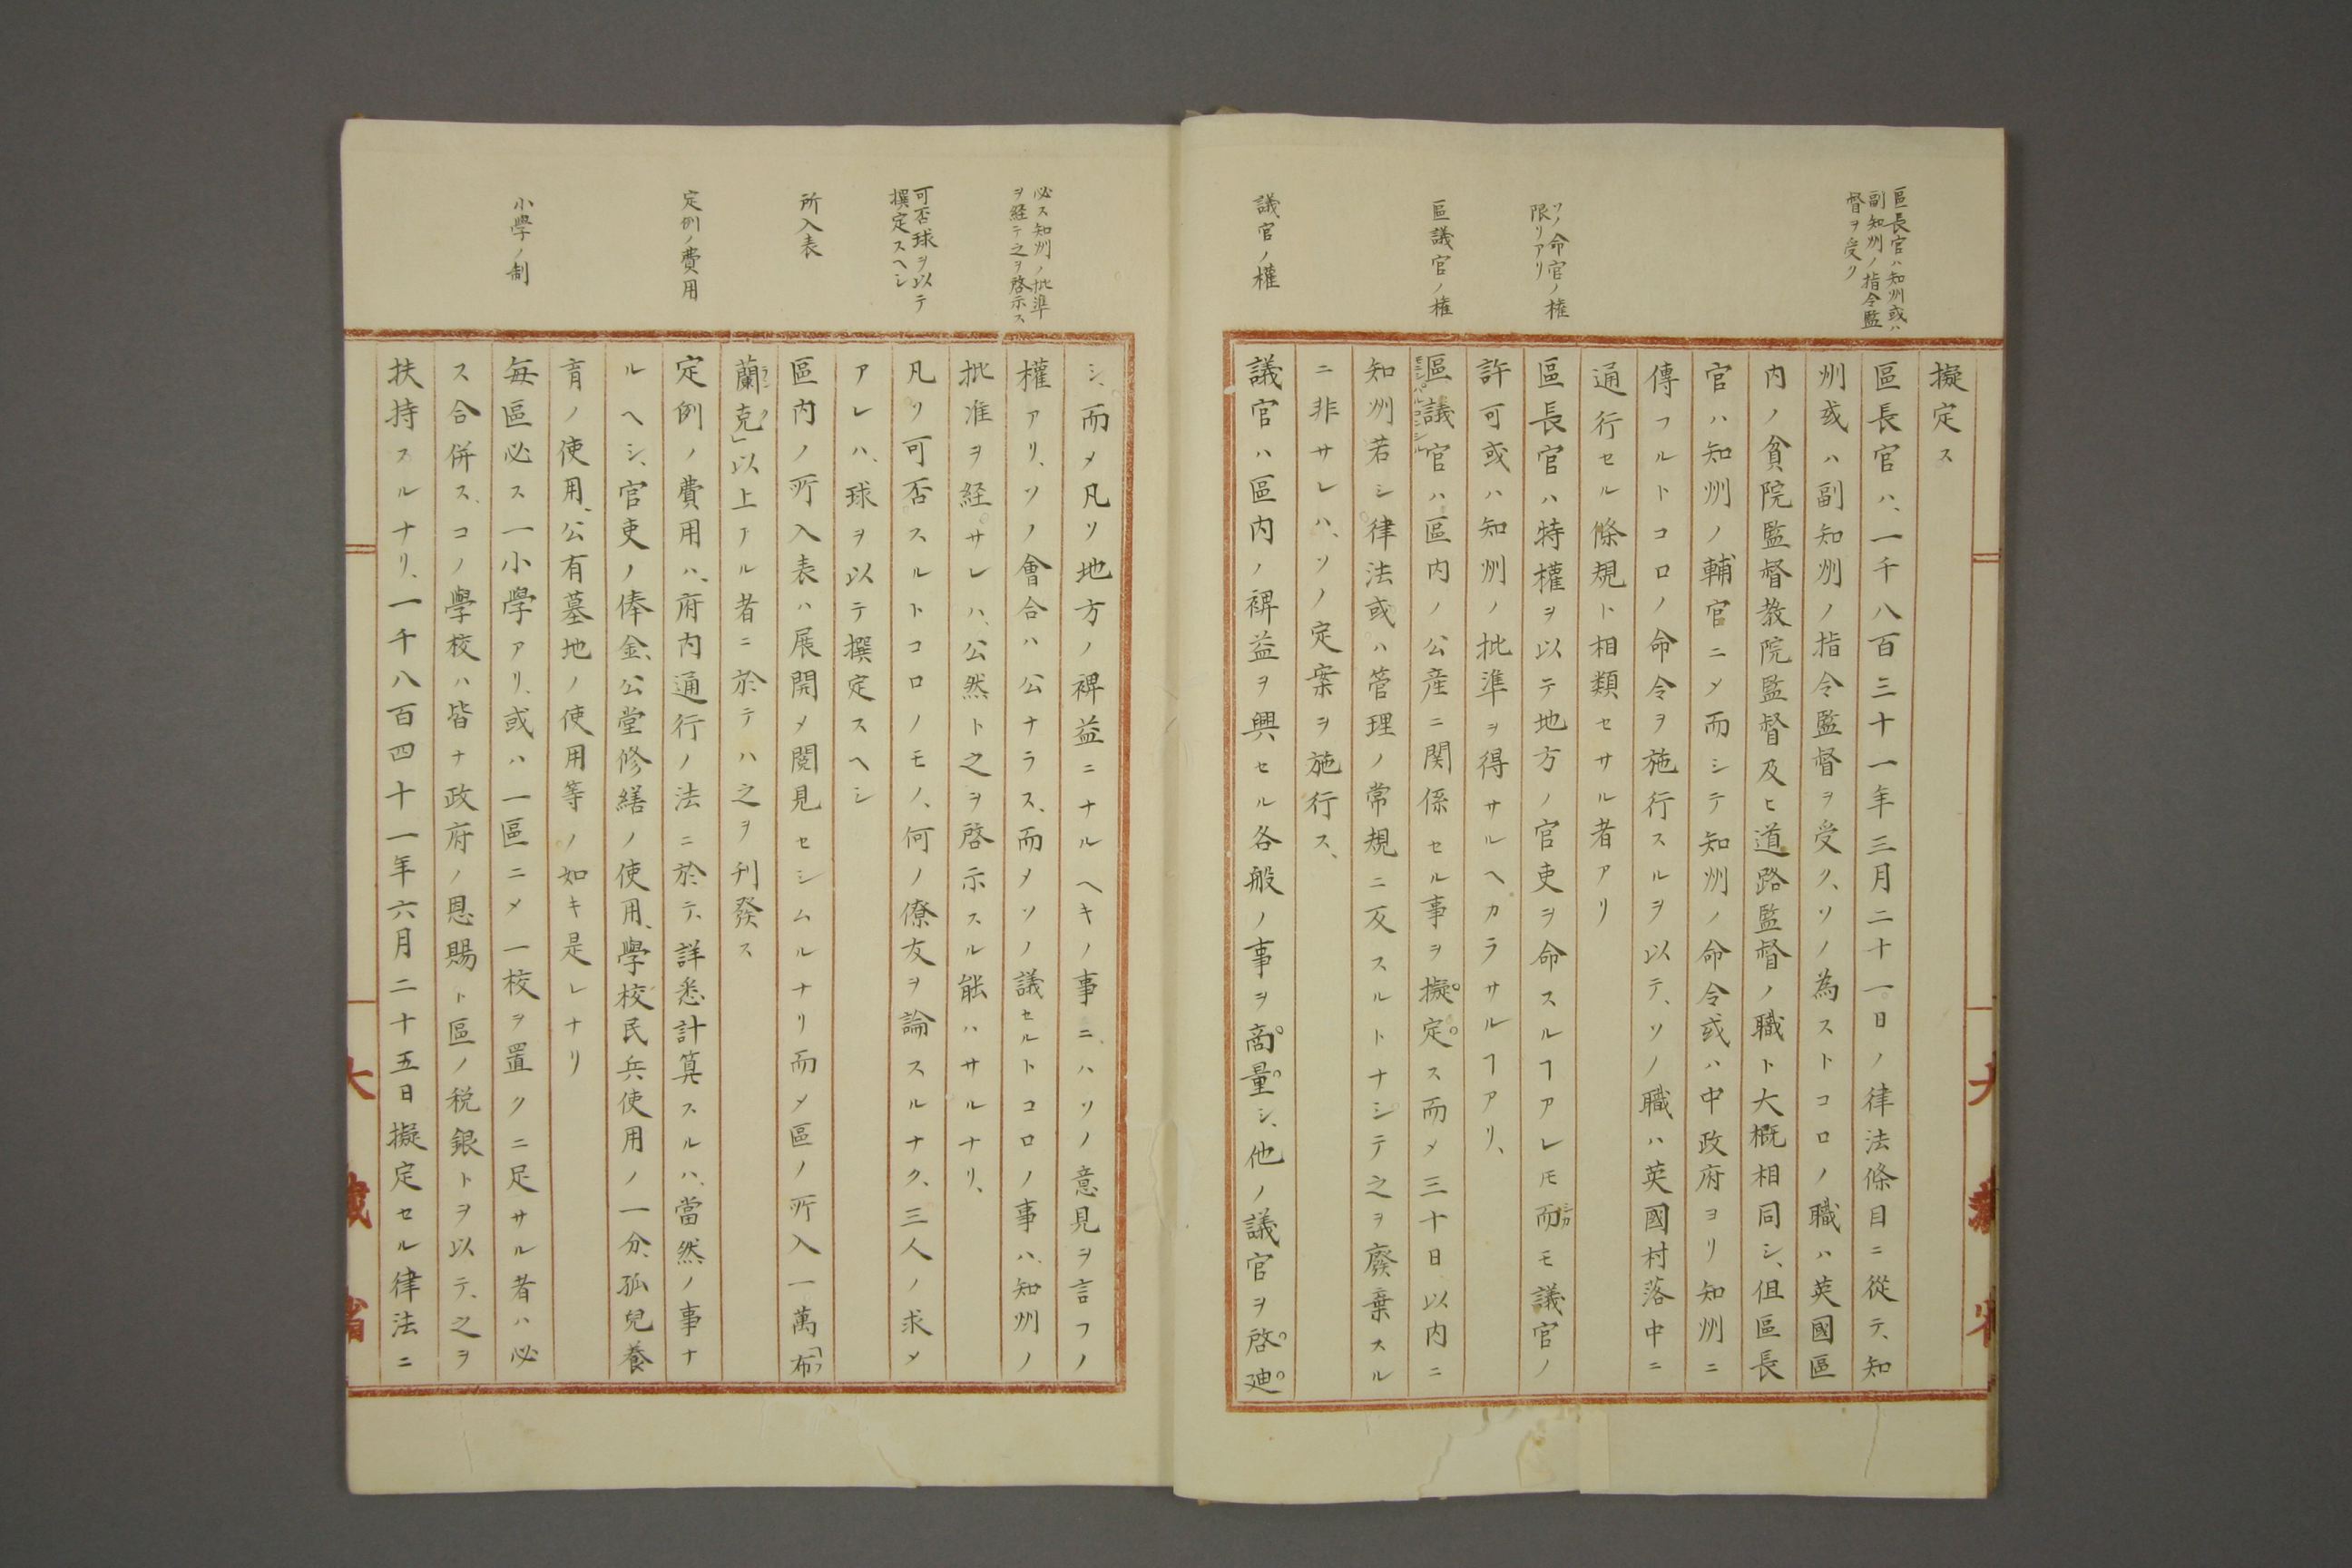 區長官ハ知州或ハ
副知州ノ指令監
督ヲ受ク
ソノ命官ノ権
限リアリ
區議官ノ権
議官ノ權
擬定ス
區長官ハ、一千八百三十一年三月二十一日ノ律法條目ニ從テ、知
州或ハ副知州ノ指令監督ヲ受ク、ソノ為ストコロノ職ハ英國區
内ノ貧院監督教院監督及ヒ道路監督ノ職ト大概相同シ、但區長
官ハ知州ノ輔官ニメ而シテ知州ノ命令或ハ中政府ヨリ知州ニ
傳フルトコロノ命令ヲ施行スルヲ以テ、ソノ職ハ英國村落中ニ
通行セル條規ト相類セサル者アリ
區長官ハ特權ヲ以テ地方ノ官吏ヲ命スルヿアレ𪜈而モ議官ノ
許可或ハ知州ノ批準ヲ得サルヘカラサルヿアリ、
區議官ハ區内ノ公産ニ関係セル事ヲ擬定ス而メ三十日以内ニ
知州若シ律法或ハ管理ノ常規ニ反スルトナシテ之ヲ廢棄スル
ニ非サレハ、ソノ定案ヲ施行ス、
議官ハ區内ノ裨益ヲ興セル各般ノ事ヲ商量シ、他ノ議官ヲ啓迪
大藏省
必ス知州ノ批準
ヲ経テ之ヲ啓示ス
可否球ヲ以テ
撰定スヘシ
所入表
定例ノ費用
小學ノ制
シ、而メ凡ソ地方ノ裨益ニナルヘキノ事ニハソノ意見ヲ言フノ
權アリ、ソノ會合ハ公ナラス、而メソノ議セルトコロノ事ハ、知州ノ
批准ヲ経サレハ、公然ト之ヲ啓示スル能ハサルナリ、
凡ソ可否スルトコロノモノ、何ノ僚友ヲ論スルナク、三人ノ求メ
アレハ、球ヲ以テ撰定スヘシ
區内ノ所入表ハ展開メ閲見セシムルナリ而メ區ノ所入一萬「布
蘭克」以上アル者ニ於テハ之ヲ刊發ス
定例ノ費用ハ、府内通行ノ法ニ於テ、詳悉計算スルハ、當然ノ事ナ
ルヘシ、官吏ノ俸金、公堂修繕ノ使用、學校民兵使用ノ一分、孤兒養
育ノ使用、公有墓地ノ使用等ノ如キ是レナリ
毎區必ス一小學アリ、或ハ一區ニメ一校ヲ置クニ足サル者ハ必
ス合併ス、コノ學校ハ皆ナ政府ノ恩賜ト區ノ税銀トヲ以テ、之ヲ
扶持スルナリ、一千八百四十一年六月二十五日擬定セル律法ニ
大藏省